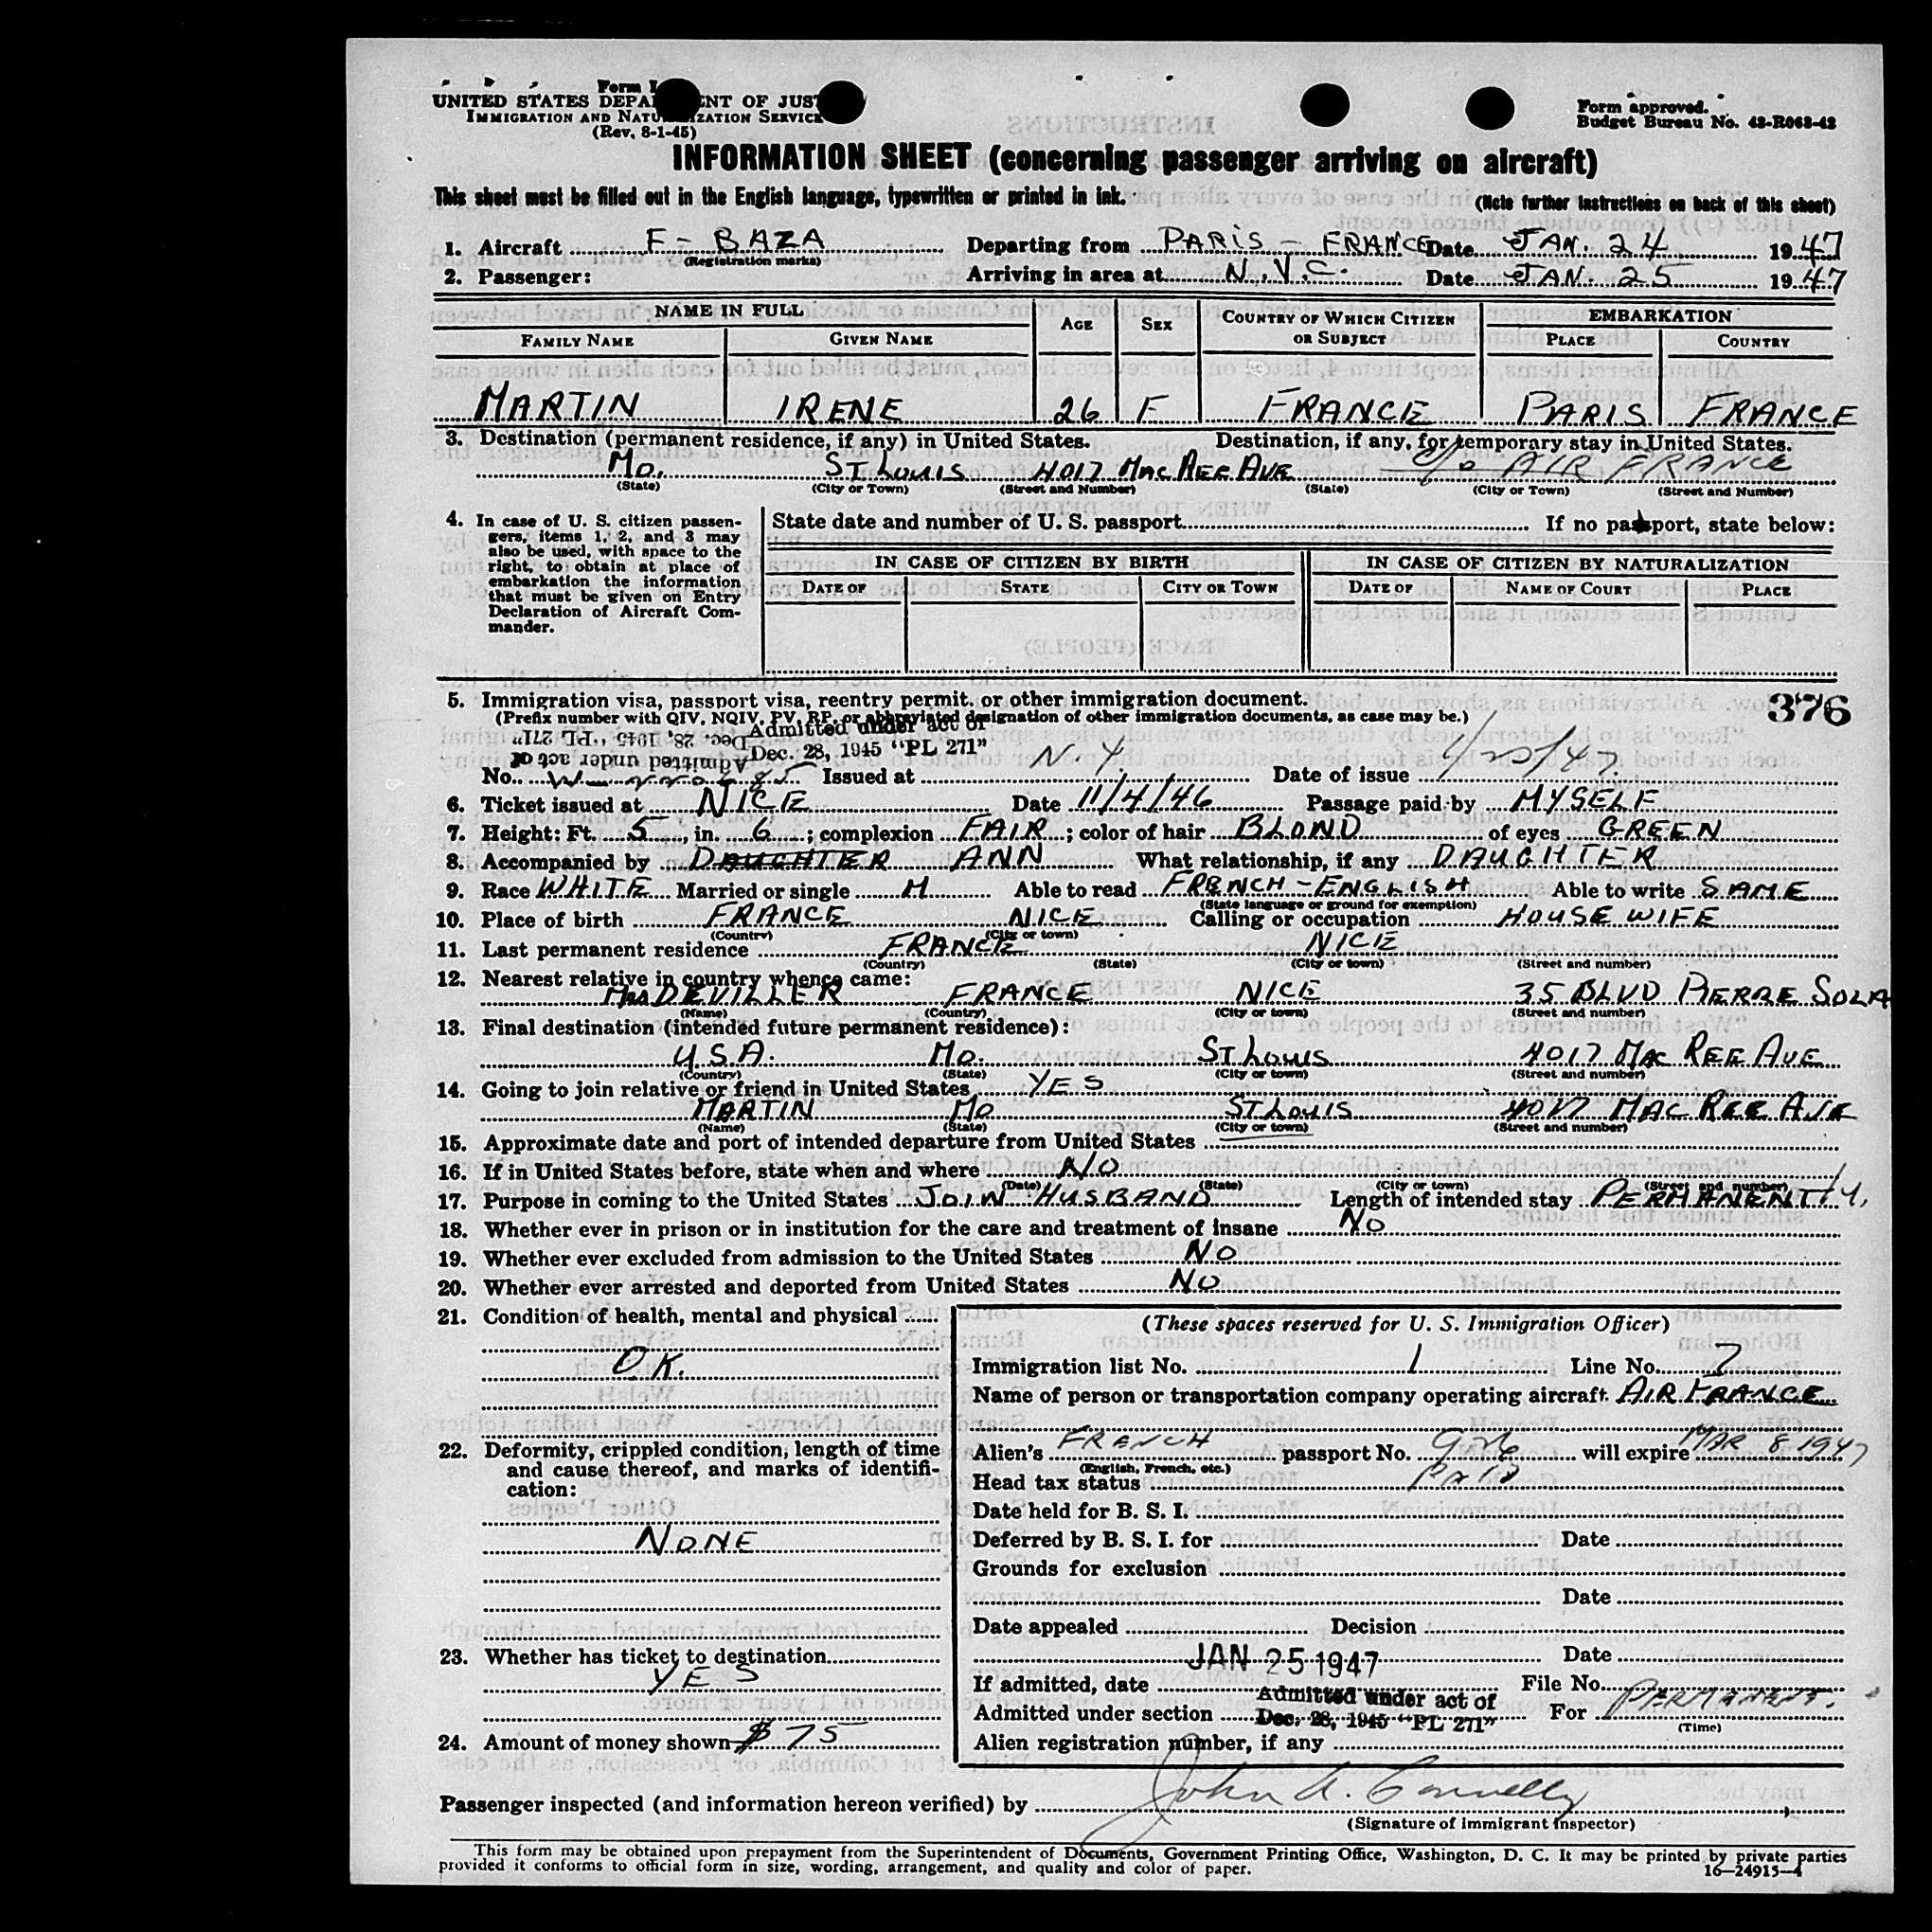 Form I
UNITED STATES DEPA ENT OF JUS
IMMIGRATION AND NATU IZATION SERVICE
(Rev. 8-1-45)
Form approved.
Budget Bureau No. 43-R063-42
INFORMATION SHEET (concerning passenger arriving on aircraft)
This sheet must be filled out in the English language, typewritten or printed in ink.
(Note further instructions on back of this sheet)
1. Aircraft F-BAZA Departing from PARIS - FRANCE Date JAN. 24 1947
(Registration marks)
2. Passenger: Arriving in area at N.Y.C. Date JAN. 25 1947
NAME IN FULL AGE SEX COUNTRY OF WHICH CITIZEN OR SUBJECT EMBARKATION
FAMILY NAME GIVEN NAME PLACE COUNTRY
MARTIN IRENE 26 F FRANCE PARIS FRANCE
3. Destination (permanent residence, if any) in United States. Destination, if any, for temporary stay in United States.
Mo. ST LOUIS 4017 MAC REE AVE c/o AIR FRANCE
(State) (City or Town) (Street and Number) (State) (City or Town) (Street and Number)
4. In case of U. S. citizen passen-
gers, items 1, 2, and 3 may
also be used, with space to the
right, to obtain at place of
embarkation the information
that must be given on Entry
Declaration of Aircraft Com-
mander.
State date and number of U. S. passport If no passport, state below:
IN CASE OF CITIZEN BY BIRTH IN CASE OF CITIZEN BY NATURALIZATION
DATE OF STATE CITY OR TOWN DATE OF NAME OF COURT PLACE
5. Immigration visa, passport visa, reentry permit, or other immigration document.
376
(Prefix number with QIV, NQIV, PV, RP, or abbreviated designation of other immigration documents, as case may be.)
Admitted under act of
Dec. 28, 1945 "PL 271"
Admitted under act of
Dec. 28, 1945 "PL 271"
No. Issued at N.Y. Date of issue 1/25/47.
6. Ticket issued at NICE Date 11/4/46 Passage paid by MYSELF
7. Height: Ft. 5, in. 6; complexion FAIR; color of hair BLOND of eyes GREEN
8. Accompanied by DAUGHTER ANN What relationship, if any DAUGHTER
9. Race WHITE Married or single M Able to read FRENCH-ENGLISH Able to write SAME
(State language or ground for exemption)
10. Place of birth FRANCE NICE Calling or occupation HOUSE WIFE
(Country) (City or town)
11. Last permanent residence FRANCE NICE
(Country) (State) (City or town) (Street and number)
12. Nearest relative in country whence came:
Mrs DEVILLER FRANCE NICE 35 BLVD PIERRE SOLA
(Name) (Country) (City or town) (Street and number)
13. Final destination (intended future permanent residence):
U.S.A. Mo. ST LOUIS 4017 MAC REE AVE
(Country) (State) (City or town) (Street and number)
14. Going to join relative or friend in United States YES
MARTIN Mo ST LOUIS 4017 MAC REE AVE
(Name) (State) (City or town) (Street and number)
15. Approximate date and port of intended departure from United States
16. If in United States before, state when and where NO
(Date) (State) (City or town) (Street and number)
17. Purpose in coming to the United States JOIN HUSBAND Length of intended stay PERMANENTLY,
18. Whether ever in prison or in institution for the care and treatment of insane NO
19. Whether ever excluded from admission to the United States NO
20. Whether ever arrested and deported from United States NO
21. Condition of health, mental and physical
O.K.
22. Deformity, crippled condition, length of time
and cause thereof, and marks of identifi-
cation:
NONE
23. Whether has ticket to destination
YES
24. Amount of money shown $75
(These spaces reserved for U. S. Immigration Officer)
Immigration list No. 1 Line No. 7
Name of person or transportation company operating aircraft AIR FRANCE
Alien's FRENCH passport No. will expire MAR 8 1947
(English, French, etc.)
Head tax status PAID
Date held for B. S. I.
Deferred by B. S. I. for Date
Grounds for exclusion
Date
Date appealed Decision
Date
If admitted, date JAN 25 1947 File No.
Admitted under section Admitted under act of Dec. 28, 1945 "PL 271" For PERMANENT.
(Time)
Alien registration number, if any
Passenger inspected (and information hereon verified) by John A. Connelly
(Signature of immigrant inspector)
This form may be obtained upon prepayment from the Superintendent of Documents, Government Printing Office, Washington, D. C. It may be printed by private parties
provided it conforms to official form in size, wording, arrangement, and quality and color of paper.
16—24915-4